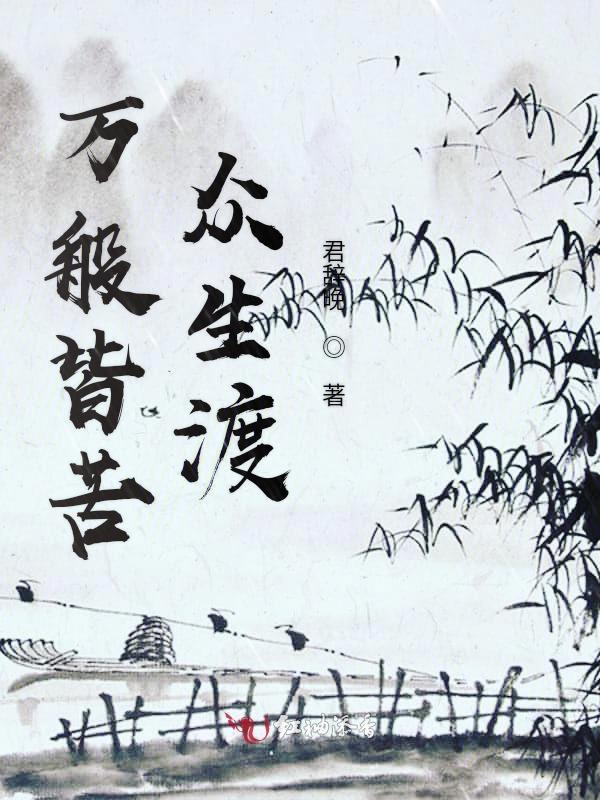 万般皆苦
众生渡
君辞晚 ◎ 著
红袖添香